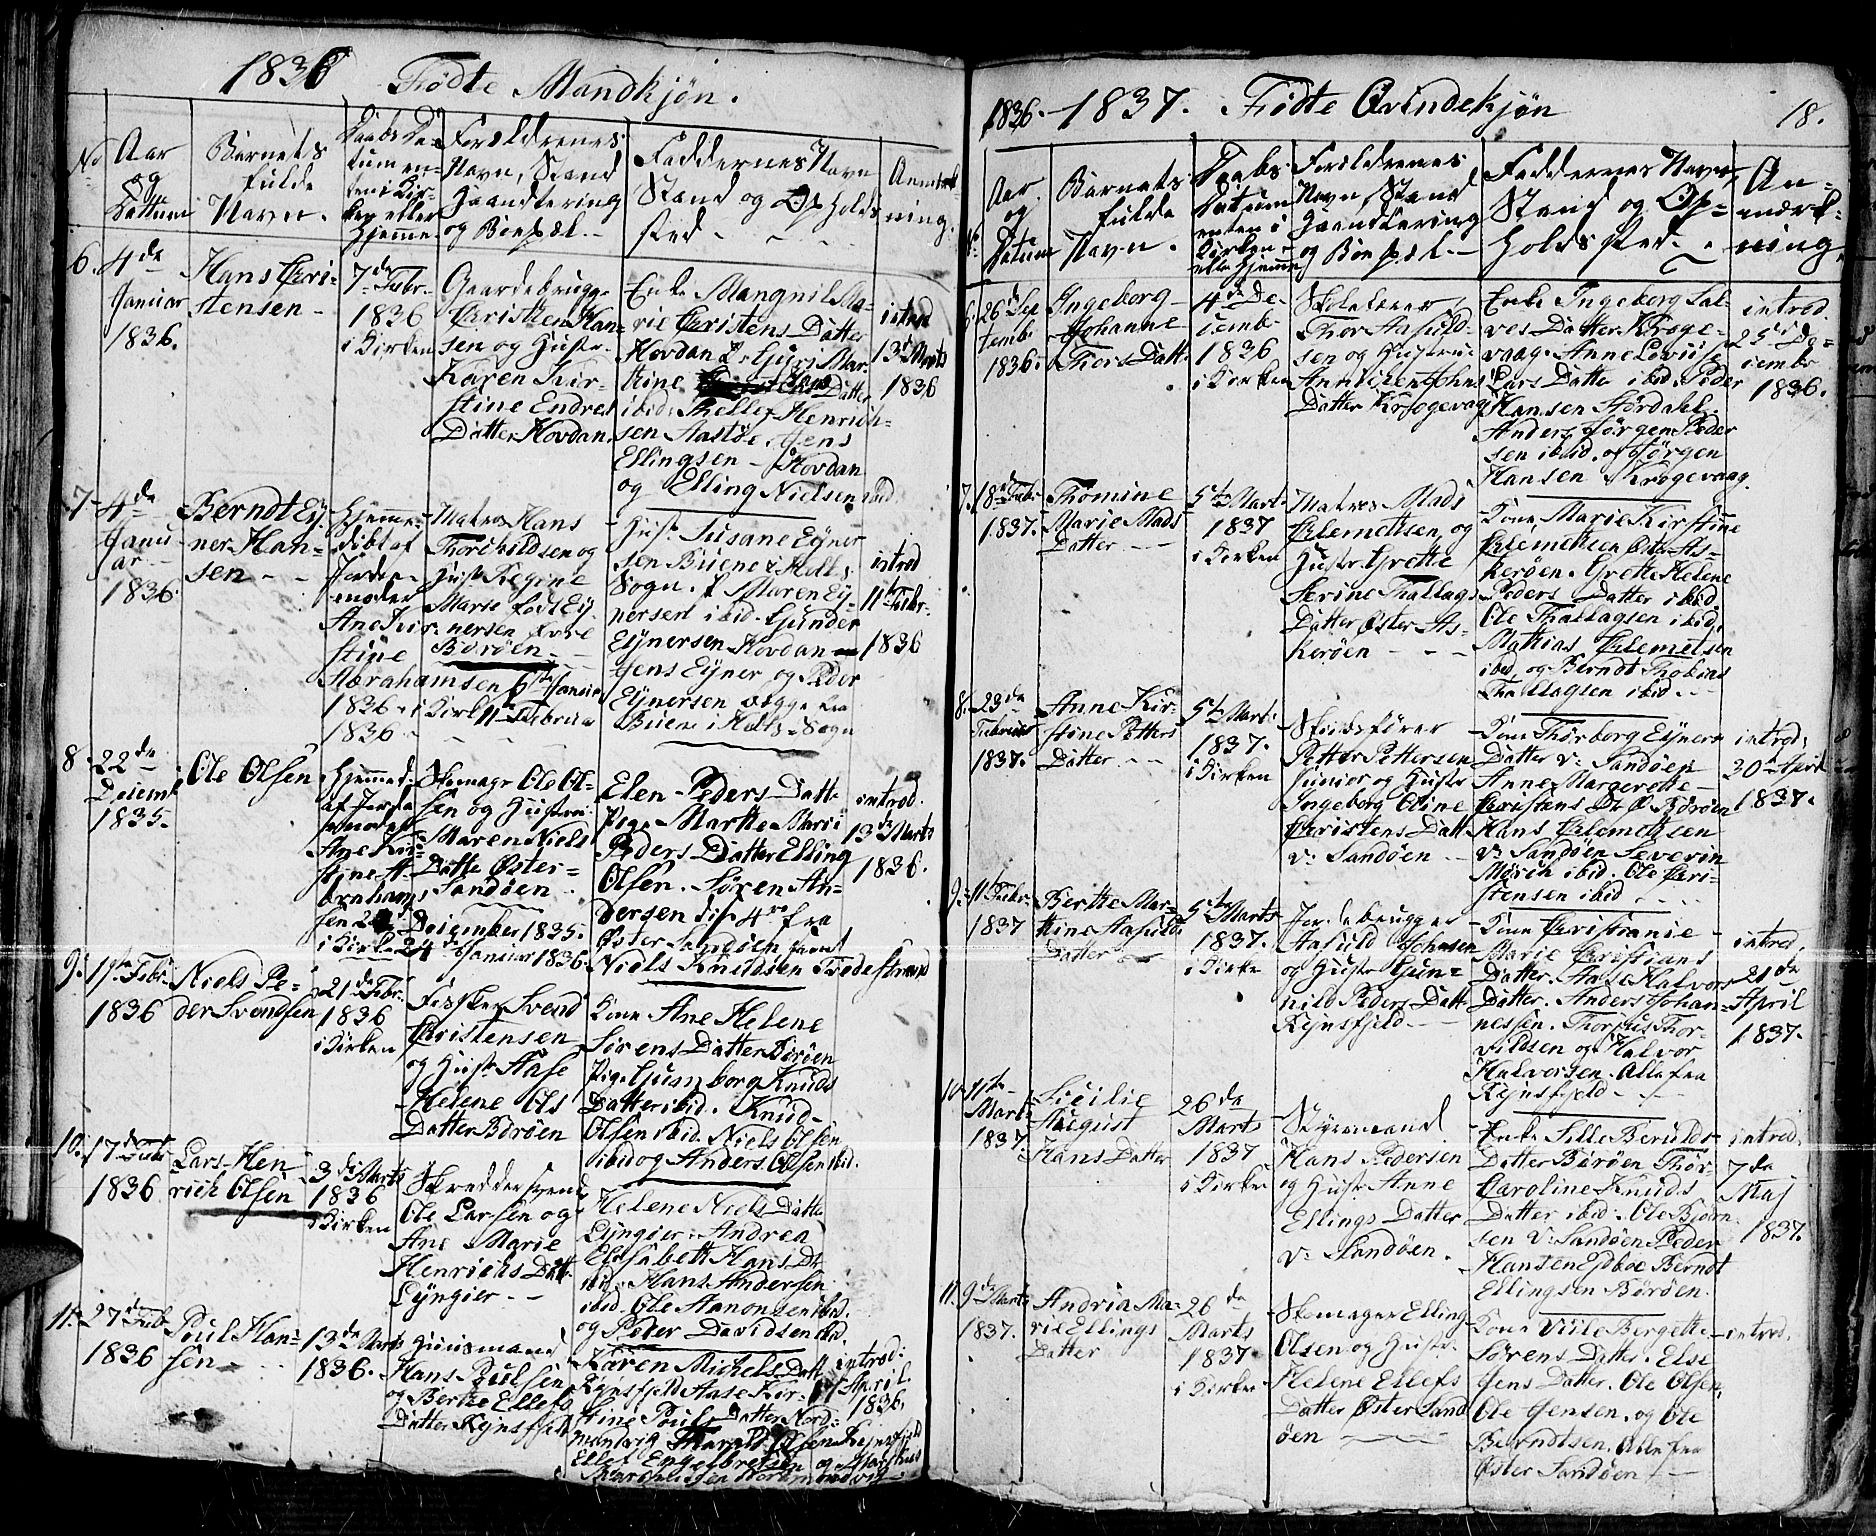 1836 Fødte Mandkjøn.
No
Aar
og
Dattum
Barnets
fulde
Navn.
Daabs Da-
tum en-
ten i Kir-
ken eller
Hjemme
Foreldrenes
Navn, Stand
Haandtering
og Boepæl.
Faddernes Navn
Stand og Opholds
sted
Anmerk-
ning.
6.
4de
Januar
1836.
Hans Chri-
stensen
7de Febr.
1836
i Kirken
Gaardebruger
Christen Han-
sen og Hustr.
Karen Kir-
stine Endres
Datter Hovdan.
Enke Mangnil Ma-
rie Christens Datter
Hovdan
Datter
ibid. Theller Henrich-
sen Aastøe, Jens
Ellingsen Hovdan
og Elling Nielsen ibid
introd
13de Marts
1836
7
4de
Janu
ar
1836.
Berndt Ey-
ner Han-
sen
Hjemme-
døbt af
Jorde-
moder
Ane Kir-
stine
Abrahamsen 6te Januar
1836 i Kirk 11te Februar
1836
Matros Hans
Thorchildsen og
Hustr Regine
Marie født Ey-
nersen
Borøen
Hustr Susane Eyner
sen Buene i Holts
Sogn. P. Maren Ey-
nersen ibid. Gunder
Eynersen Hovdan
Jens Eyner og Peder
Eynersen begge fra
Buene i Holts Sogn
introd
11te Febr.
1836
8.
22de
Decemb
1835.
Ole Olsen
Hjemmed.
af Jorde
moder
Ane Kir-
stine A-
brahams
sen
December 1835.
i Kirk 24de Januar 1836.
Skomager Ole Ol-
sen og Hustrue
Maren Niels
Datter Øster-
Sandøen
Elen Peders Datt.
Pige Marthe Marie
Peders Datter Elling
Olsen. Søren An-
dersen disse 4re fra
Øster Sandøen samt
Niels Knudsen Tvedestrand
introd.
13de Marts
1836.
9.
1ste Febr.
1836
Niels Pe-
der Svendsen
21de Febr.
1836
i Kirken
Fisker Svend
Christensen
og Hustr Aase
Helene Ols
Datter Borøen
Kone Ane Helene
Sørens Datter Borøen
Pige Gumborg Knuds
Datter ibid. Knud
Olsen ibid. Niels Olsen
ibid og Anders Olsen ibid.
10.
17de Febr
1836
Lars Hen
rich Olsen
3de Marts
1836
i Kirken
Skreddersvend
Ole Larsen og
Ane Marie
Henrichs Datt.
Lyngier
Helene Niels Datter
Lyngier. Andrea
Elisabett Hans Dr
ibid. Hans Andersen
ibid. Ole Aanonsen ibid.
og Peter Davidsen ibid.
11.
27de Feb
1836
Poul Han-
sen
13de Marts
1836.
Huusmand
Hans Poulsen
og Berthe Ellefs
Datter Kynsfjeld
Karen Michels Datt
Kynsfjeld Aase Kir-
stine Pouls Datter Nord-
Olsen Kynsfjeld
Ellef Engelbretsen og
introd:
April
1836.
1836. 1837. Fødte Qvindekjøn
18.
No
Aar
og
Datum
Barnets
fulde
Navn.
Daabs
Datum
enten i
Kirken
eller Hjemme
Foreldrenes
Navn, Stand
Haandtering
og Boepæl.
Faddernes Navn,
Stand og Op-
holdsted.
An-
merk-
ning.
6.
26de Sep
temb.
1836.
Ingeborg
Johanne
Thors Datt.
4de De-
cemb.
1836
i Kirken
Skolelerer
Thor Aasuld-
sen og Hustrue
Anne Johns
Datter Krogevaag
Enke Ingeborg Sal-
ves Datter Kroge-
vaag. Anne Lovise
Lars Datter ibid. Peder
Hansen Størdahl.
Anders Jørgen Peder
sen ibid. og Jørgen
Hansen Krogevaag
introd.
25de De-
cembr
1836.
7.
18de Febr
1837.
Thomine
Marie Mads
Datter
5te Marts
1837
i Kirken
Matros Mads
Clemetsen og
Hustr Grette
Serine Thallags
Datter Øster As-
kerøen
Kone Marie Kirstine
Clemetsen Øster As-
kerøen. Grette Helene
Peders Datter ibid
Ole Thallagsen ibid,
Mathias Clemetsen
ibid og Berndt Thobias
Thallagsen ibid.
8.
23de
Februar
1837.
Anne Kir-
stine Petters
Datter
5te Marts
1837.
i Kirken
Skibsfører
Petter Pettersen
Junior og Hustr
Ingeborg Oline
Christens Datt
V. Sandøen
Kone Thorborg Eyners
Datter V. Sandøen
Anne Margerette
Christens Dr Ø. Borøen
Hans Clemetsen
V. Sandøen Severin
Morch ibid. Ole Chri-
stensen ibid
introd.
30te April
1837.
9.
11te Febr.
1837
Berthe Mar-
thine Aasulds
Datter
5te Marts
1837.
i Kirken
Jordebruger
Aasuld Johnsen
og Hustr Gun-
nild Peders Datt
Kynsfjeld
Kone Christianie
Marie Christians
Datter. Aase Halvors
Datter. Anders Johan-
nessen. Thorjus Thor-
vildsen og Halvor
Halvorsen. Alle fra
Kynsfjeld
introd.
21de
April
1837.
10.
11te
Marts
1837.
Sicilie
August
Hans Datter
26de
Marts
1837
i Kirken
Styrmand
Hans Pedersen
og Hustr Anne
Ellings Datter
V. Sandøen.
Enke Sille Berulds-
Datter Borøen Thor
Caroline Knuds
Datter ibid. Ole Bjørn
sen V. Sandøen Peder
Hansen Eydboe Berndt
Ellingsen Borøen.
introd.
7de
Maj
1837.
11.
9de Marts
1837.
Andria Ma-
rie Ellings
Datter
26de
Marts
1837
i Kirken
Skomager Elling
Olsen og Hustr.
Helene Ellefs
Datter Øster Sand
øen
Kone Viile Bergette
Sørens Datter. Else
Jens Datter. Ole Olsen,
Ole Jensen. og Ole
Berndtsen. Alle fra
Øster Sandøen
introd.